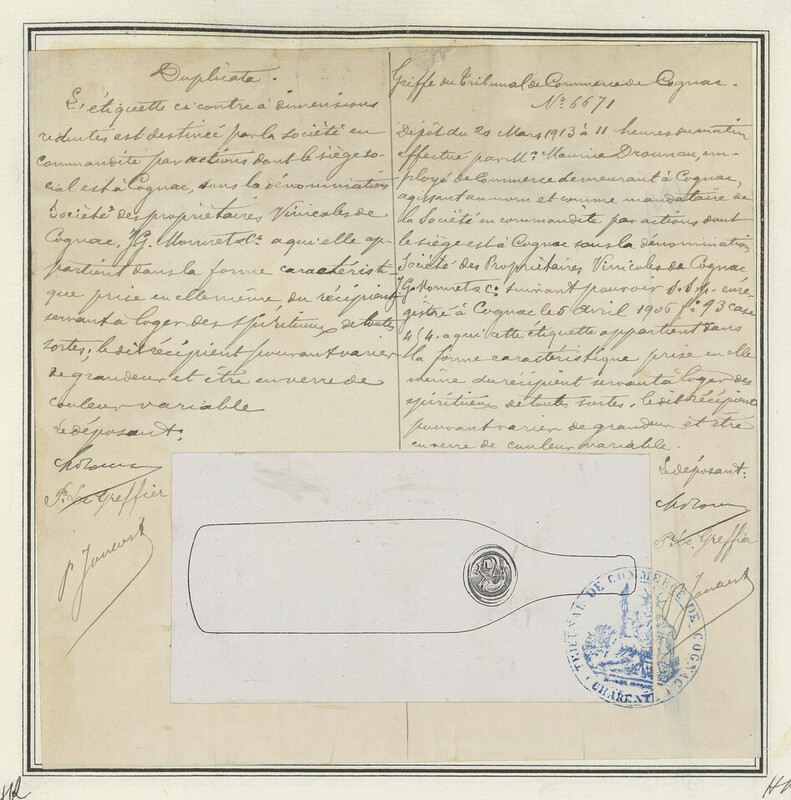 Duplicata.
L'étiquette ci contre à dimensions
réduites est destinée par la société en
commandite par actions dont le siège so-
cial est à Cognac, sous la dénomination
Société des propriétaires Vinicoles de
Cognac, J.G. Monnet & Cº a qu'elle ap-
partient dans la forme caractéristi-
que prise en elle même, du récipient
servant à loger des spiritueux de toutes
sortes; le dit récipient pouvant varier
de grandeur et être en verre de
couleur variable
Le déposant:
P. Le Greffier
Griffe du Tribunal de Commerce de Cognac.
Nº 6671
Dépôt du 20 Mars 1913 à 11 heures du matin
effectué par Mr. Maurice Drounau, em-
ployé de Commerce demeurant à Cognac,
agissant au nom et comme mandataire de
la Société en commandite par actions dont
le siège est à Cognac sous la dénomination
Société des Propriétaires Vinicoles de Cognac
J.G. Monnet & Cº. suivant pouvoir s.s.p. enre-
gistré à Cognac le 6 avril 1906 fº 93 case
454. a qui cette étiquette appartient dans
la forme caractéristique prise en elle
même du récipient servant à loger des
spiritueux de toutes sortes, le dit récipient
pouvant varier de grandeur et être
en verre de couleur variable.
Le déposant:
P. Le Greffier
TRIBUNAL DE COMMERCE DE COGNAC
(CHARENTE)